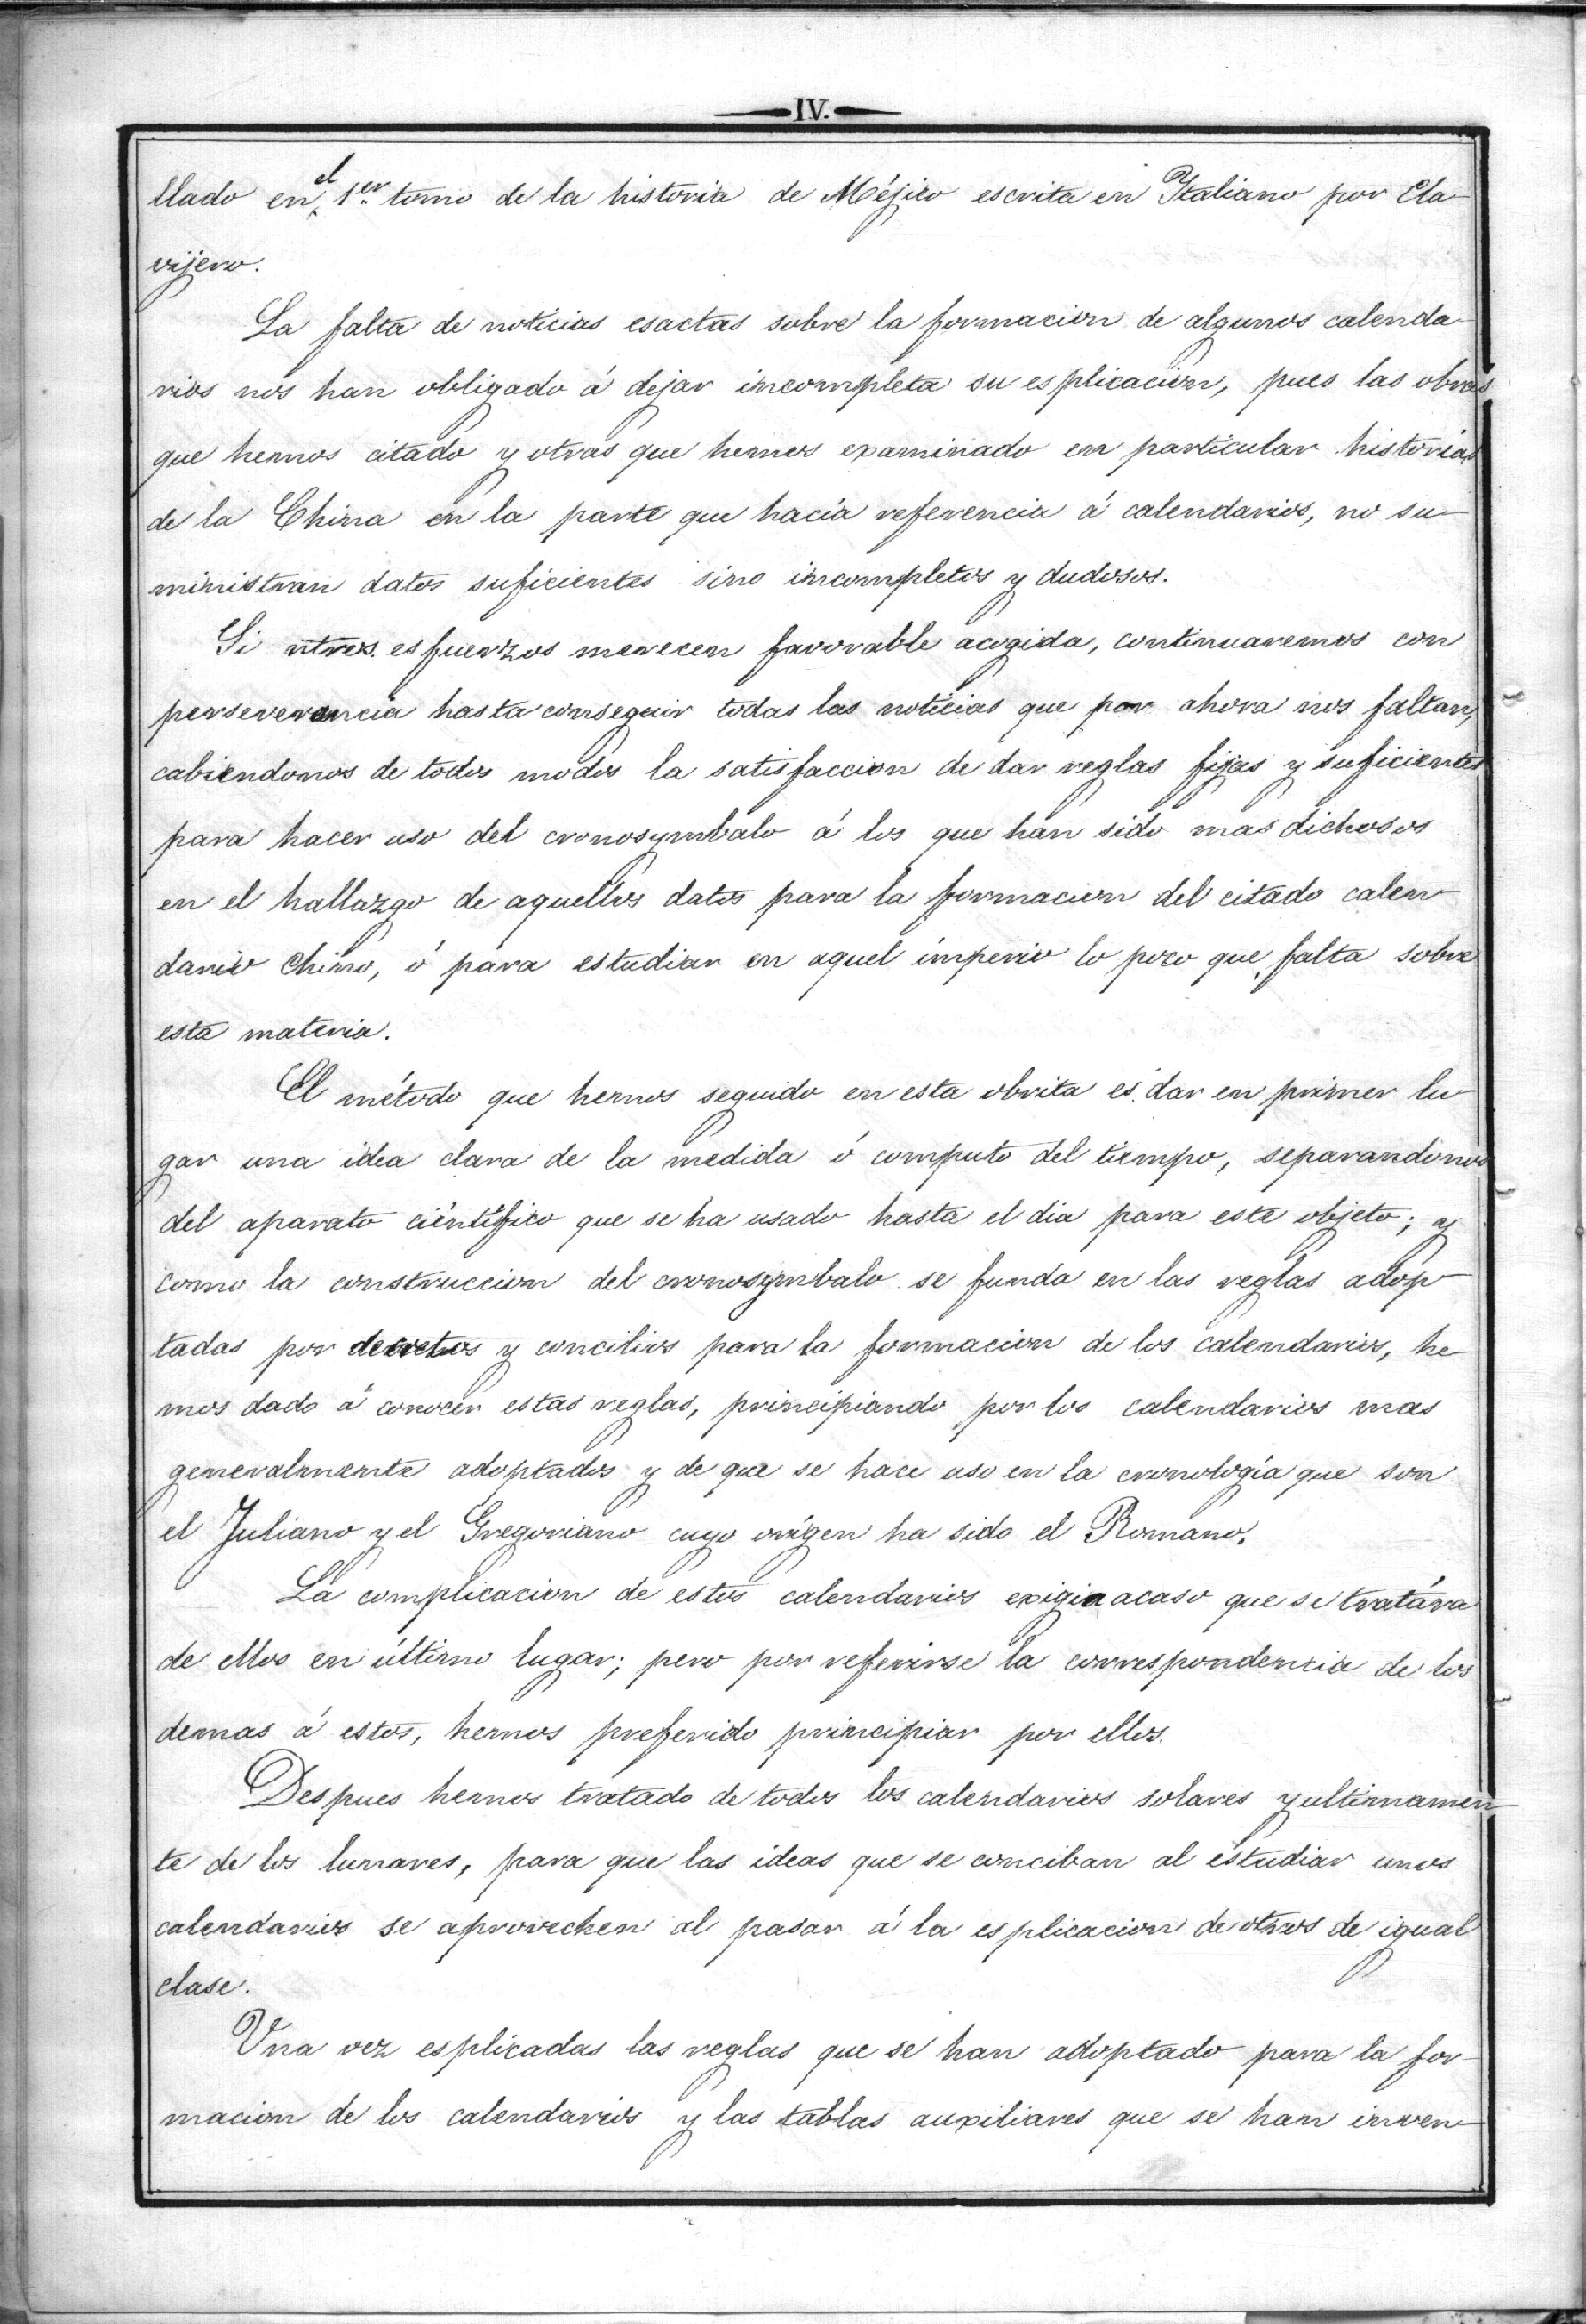 IV.
llado en el 1er tomo de la historia de Méjico escrita en Italiano por Cla-
vijero.
La falta de noticias esactas sobre la formacion de algunos calenda-
rios nos han obligado á dejar incompleta su esplicacion, pues las obras
que hemos citado y otras que hemos examinado en particular historias
de la China en la parte que hacía referencia á calendarios, no su-
ministran datos suficientes sino incompletos y dudosos.
Si ntros. esfuerzos merecen favorable acogida, continuaremos con
perseverancia hasta conseguir todas las noticias que por ahora nos faltan,
cabiendonos de todos modos la satisfaccion de dar reglas fijas y suficientes
para hacer uso del cronosymbalo á los que han sido mas dichosos
en el hallazgo de aquellos datos para la formacion del citado calen-
dario Chino, ó para estudiar en aquel imperio lo poco que falta sobre
esta materia.
El método que hemos seguido en esta obrita es dar en primer lu-
gar una idea clara de la medida ó computo del tiempo, separandonos
del aparato científico que se ha usado hasta el dia para este objeto; y
como la construccion del cronosymbalo se funda en las reglas adop-
tadas por decretos y concilios para la formacion de los calendarios, he-
mos dado á conocer estas reglas, principiando por los calendarios mas
generalmente adoptados y de que se hace uso en la cronología que son
el Juliano y el Gregoriano cuyo orígen ha sido el Romano.
La complicacion de estos calendarios exigia acaso que se tratára
de ellos en último lugar; pero por referirse la correspondencia de los
demas á estos, hemos preferido principiar por ellos.
Despues hemos tratado de todos los calendarios solares y ultimamen-
te de los lunares, para que las ideas que se conciban al estudiar unos
calendarios se aprovechen al pasar á la esplicacion de otros de igual
clase.
Una vez esplicadas las reglas que se han adoptado para la for-
macion de los calendarios y las tablas auxiliares que se han inven-